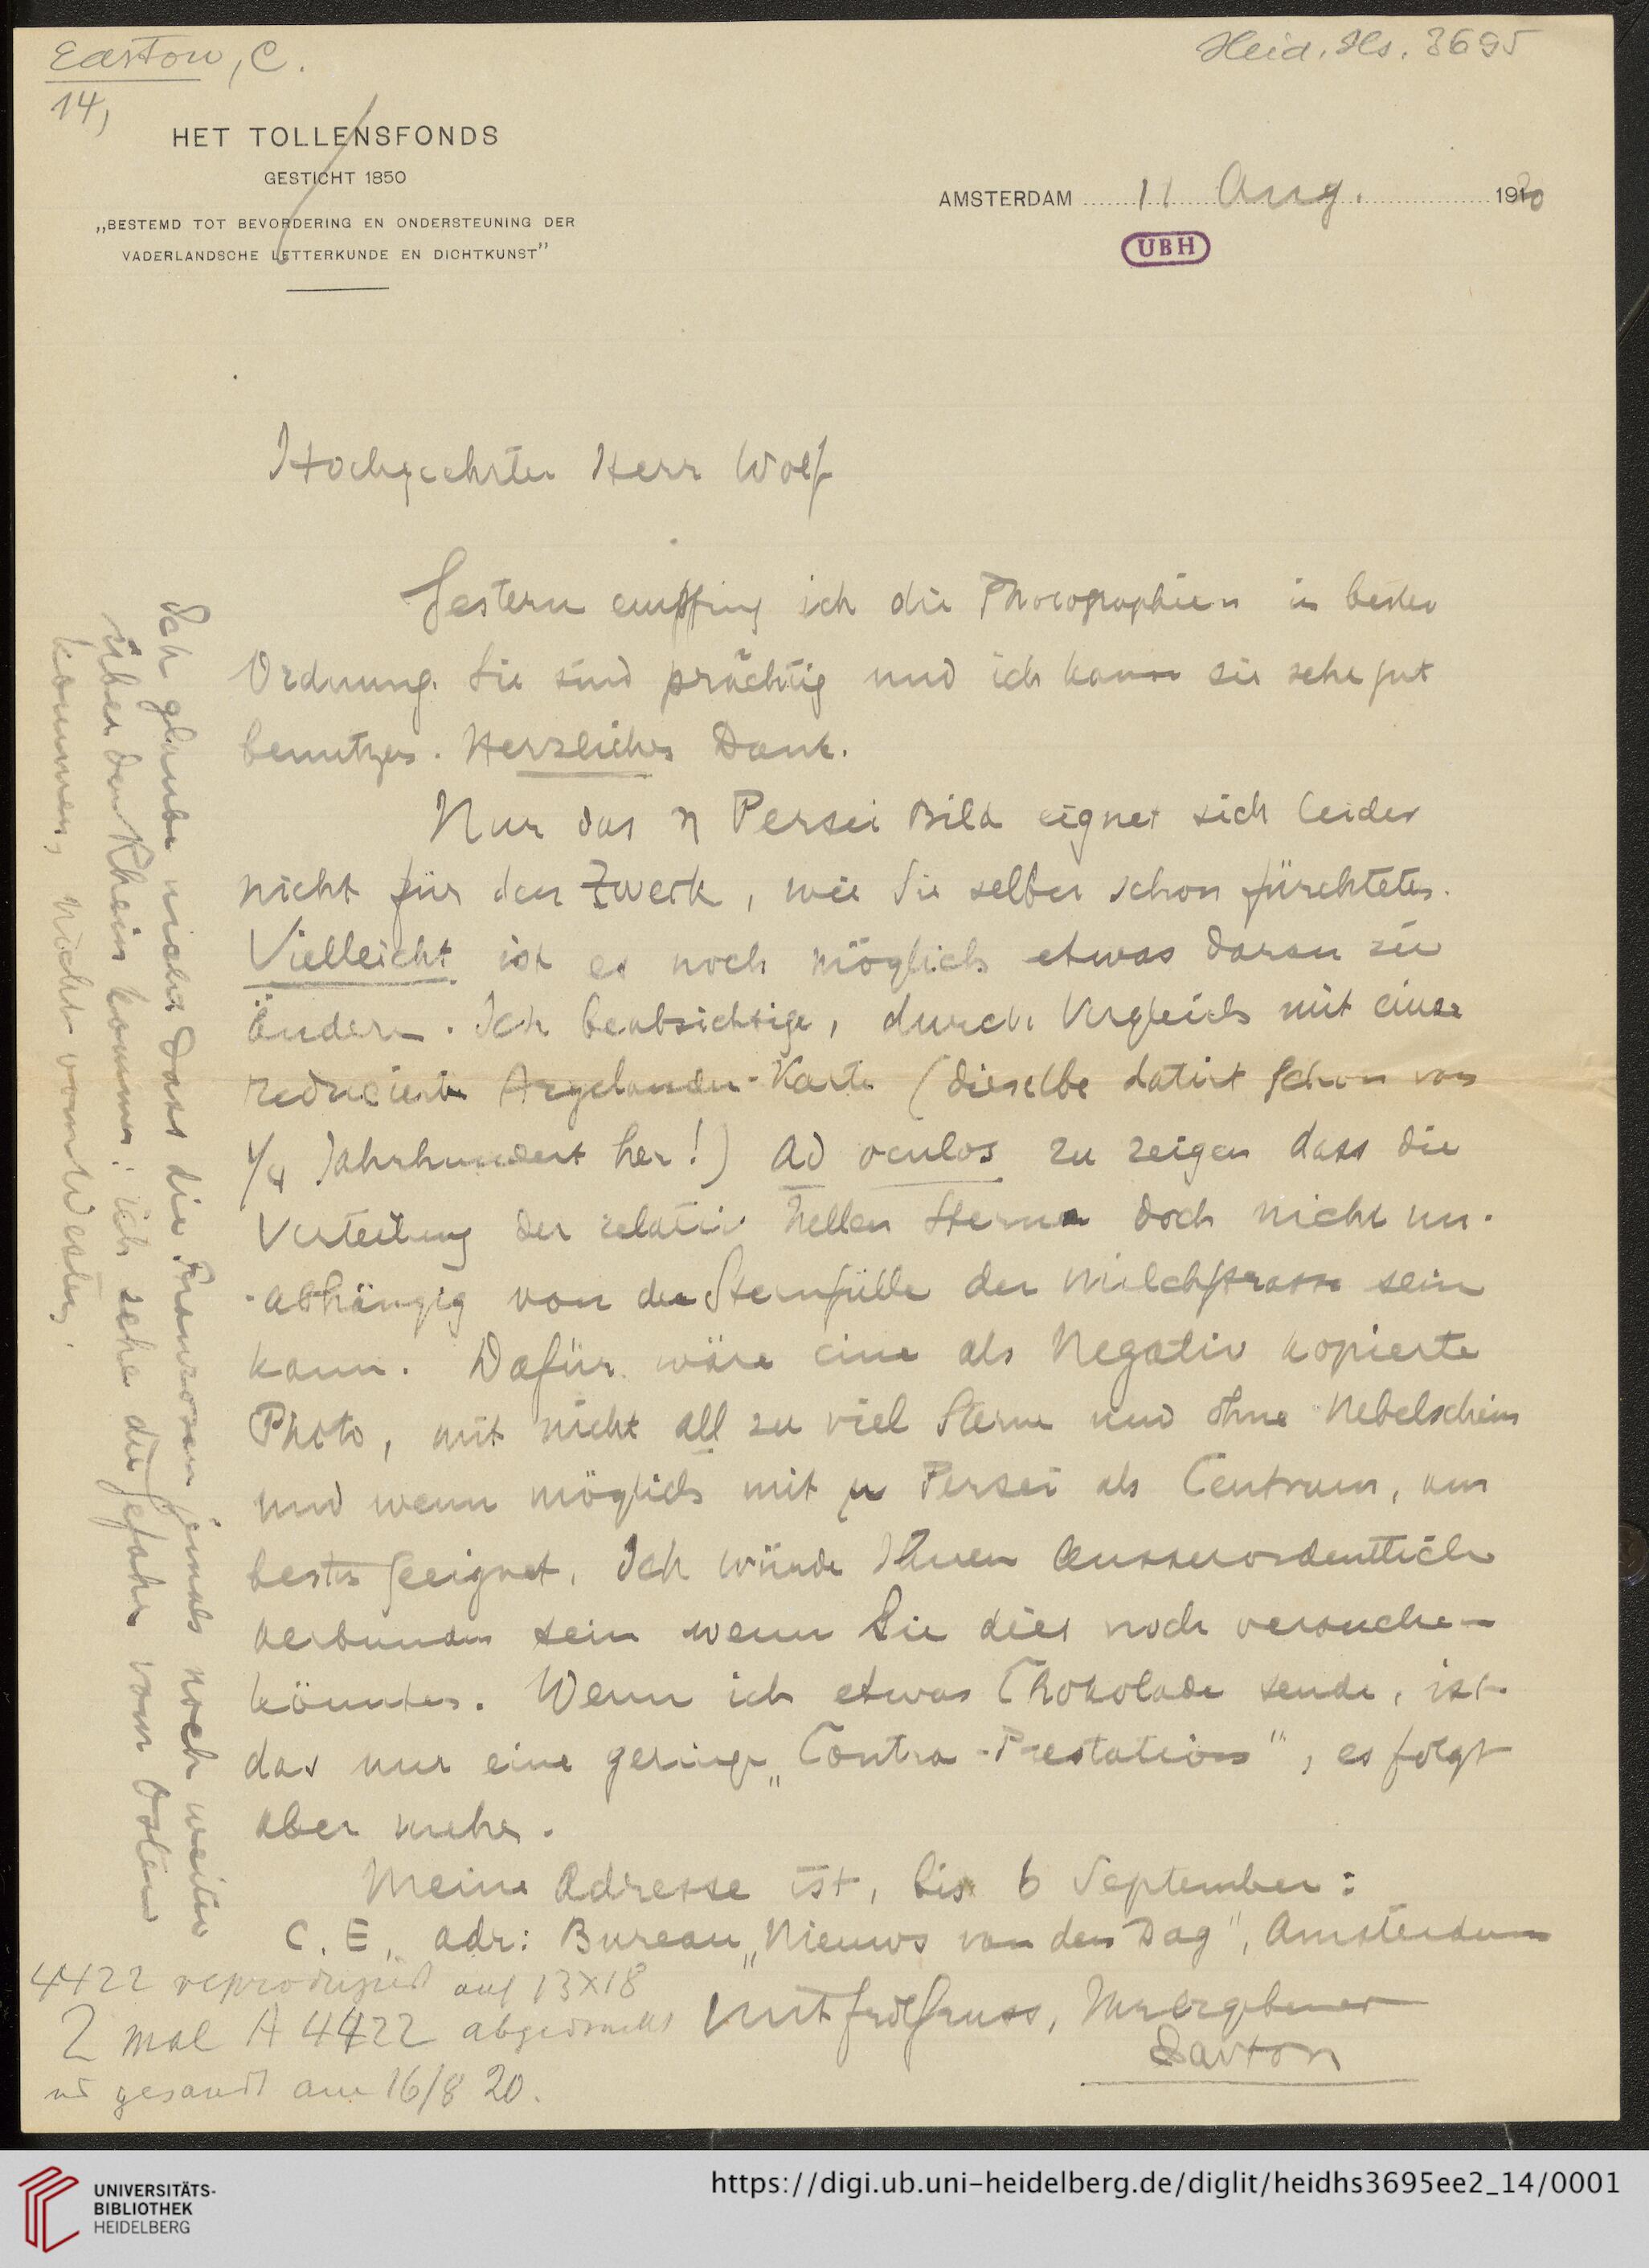 Easton, C.
Heid. Hs. 3695
14,
HET TOLLENSFONDS
GESTICHT 1850
„BESTEMD TOT BEVORDERING EN ONDERSTEUNING DER
VADERLANDSCHE LETTERKUNDE EN DICHTKUNST”
AMSTERDAM 11 Aug. 1920
UBH
Hochgeehrter Herr Wolf
Gestern empfing ich die Photographien in bester
Ordnung. Sie sind prächtig und ich kann sie sehr gut
benutzen. Herzlichen Dank.
Nur das η Persei Bild eignet sich leider
nicht für den Zweck, wie Sie selber schon fürchteten.
Vielleicht ist es noch möglich etwas daran zu
ändern. Ich beabsichtige, durch Vergleich mit einer
reducierte Argelander-Karte (dieselbe datirt schon von
1/4 Jahrhundert her!) ad oculos zu zeigen dass die
Verteilung der relativ hellen Sterne doch nicht un-
-abhängig von der Sternfülle der Milchstrasse sein
kann. Dafür wäre eine als Negativ kopierte
Photo, mit nicht all zu viel Sterne und ohne Nebelschein
und wenn möglich mit η Persei als Centrum, am
besten geeignet. Ich würde Ihnen ausserordentlich
verbunden sein wenn Sie dies noch versuchen
könnten. Wenn ich etwas Chokolade sende, ist
das nur eine geringe „Contra-Prestation”, es folgt
aber mehr.
Meine Adresse ist, bis 6 September:
C. E., adr: Bureau „Nieuws van den Dag”, Amsterdam
Mit frdl Gruss, Ihr ergebener
Easton
Ich glaube nicht dass die Franzosen jemals noch weiter
über den Rhein kommen: ich sehe die Gefahr vom Osten
kommen, nicht vom Westen.
4422 reproduziert auf 13x18
2 mal A 4422 abgedruckt
und gesandt am 16/8 20.
UNIVERSITÄTS-
BIBLIOTHEK
HEIDELBERG
https://digi.ub.uni-heidelberg.de/diglit/heidhs3695ee2_14/0001